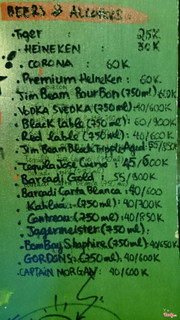 BEERS & ALCOHOLS
. Tiger 25K
. HEINEKEN : 30K
. CORONA : 60K
. Premium Heineken : 60K
. Jim Beam Bourbon (750ml)
. Vodka Svedka (750ml) : 40/600K
. Black lable (750ml) : 60/900K
. Red lable (750ml) : 40/600K
. Jim Beam Black Aged 55/850K
. Tequila Jose Cuervo : 45/600K
. Barcadi Gold : 55/900K
. Barcadi Carta Blanca : 40/600
. Kahlua : (750ml) : 40/700K
. Contreau : (750ml) : 40/850K
. Jagermeister : (750ml) :
. BomBay Shaphire (750ml) : 40/650K
. GORDONS : (750ml) : 40/600K
. CAPTAIN MORGAN : 40/600K